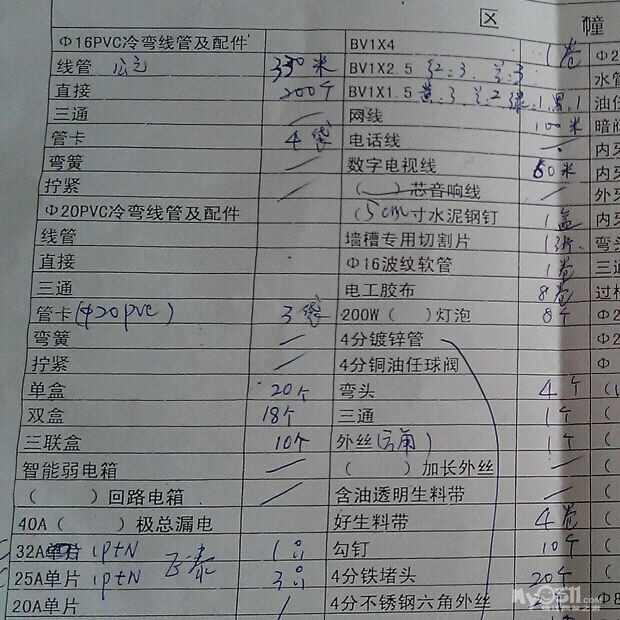 幢
Φ16PVC冷弯线管及配件 BV1X4 1卷 Φ2
线管 330米 BV1X2.5 红:3. 兰:3 水管
直接 200个 BV1X1.5 黄:3. 兰2 绿.1.黑.1 油任
三通 / 网线 100米 暗阀
管卡 4袋 电话线 / 内牙
弯簧 / 数字电视线 50米 内牙
拧紧 / ( )芯音响线 / 外牙
Φ20PVC冷弯线管及配件 (5cm寸水泥钢钉 1盒 内牙
线管 墙槽专用切割片 1片. 弯头
直接 Φ16波纹软管 1卷 三通
三通 电工胶布 8卷 过桥
管卡(Φ20pvc) 3袋 200W( )灯泡 8个 Φ2
弯簧 / 4分镀锌管 Φ2
拧紧 / 4分铜油任球阀 Φ
单盒 20个 弯头 4个 (
双盒 18个 三通 1个 (
三联盒 10个 外丝(六角) 1个 (
智能弱电箱 / ( )加长外丝 / (
( )回路电箱 / 含油透明生料带 / (
40A( )极总漏电 好生料带 4卷 (
32A单片 1P+N 1 勾钉 10个 (
25A单片 1P+N 3 4分铁堵头 20个
20A单片 / 4分不锈钢六角外丝 Φ8
My0511.com